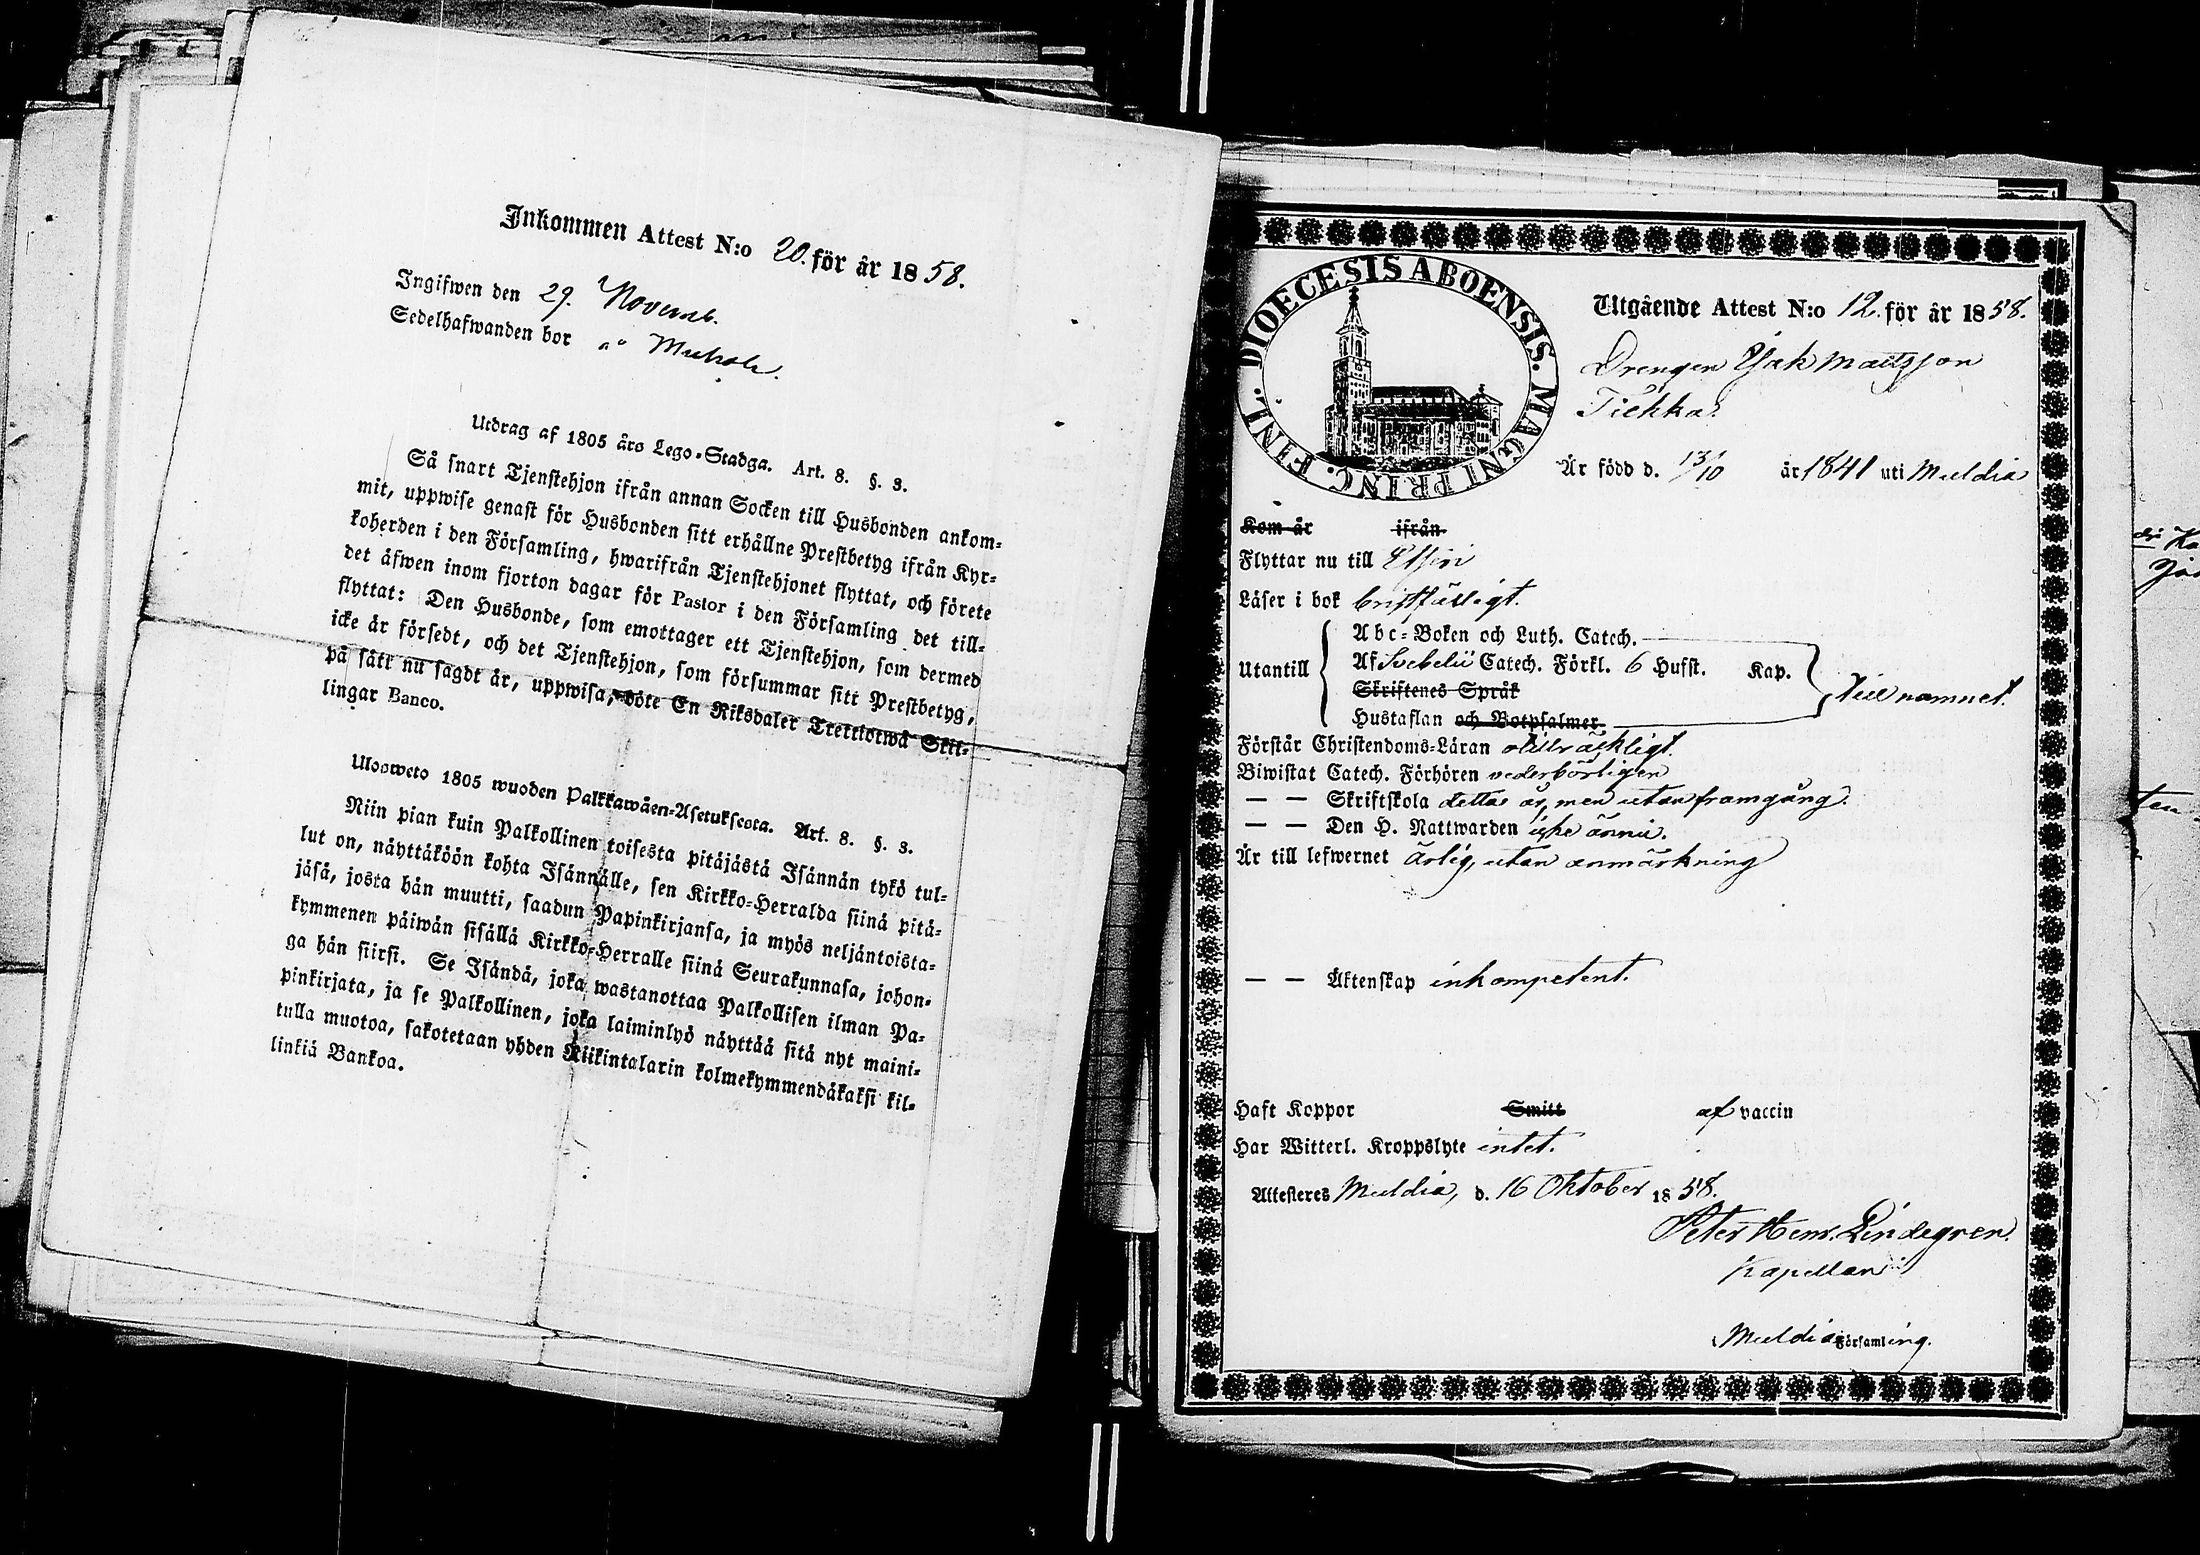 Inkommen Attest N:o 20. för år 1858.
Ingifwen den 29. Novemb.
Sedelhafwanden bor
Utdrag af 1805 års Lego-Stadga. Art. 8. §. 3.
Så snart Tjenstehjon ifrån annan Socken till Husbonden ankom-
mit, uppwise genast för Husbonden sitt erhållne Prestbetyg ifrån Kyr-
koherden i den Församling, hwarifrån Tjenstehjonet flyttat, och förete
det äfwen inom fjorton dagar för Pastor i den Församling det till-
flyttat: Den Husbonde, som emottager ett Tjenstehjon, som dermed
icke är försedt, och det Tjenstehjon, som försummar sitt Prestbetyg,
på sätt nu sagdt är, uppwisa, böte En Riksdaler Trettiotwå Skil-
lingar Banco.
Ulosweto 1805 wuoden Palkkawäen-Asetuksesta. Art. 8. §. 3.
Niin pian kuin Palkollinen toisesta pitäjästä Isännän tykö tul-
lut on, näyttäköön kohta Isännälle, sen Kirkko-Herralda siinä pitä-
jäsä, josta hän muutti, saadun Papinkirjansa, ja myös neljäntoista-
kymmenen päiwän sisällä Kirkko-Herralle siinä Seurakunnasa, johon-
ga hän siirsi. Se Isändä, joka wastanottaa Palkollisen ilman Pa-
pinkirjata, ja se Palkollinen, joka laiminlyö näyttää sitä nyt maini-
tulla muotoa, sakotetaan yhden Riikintalarin kolmekymmendäkaksi kil-
linkiä Bankoa.
DIOECESIS ABOENSIS. MAGNI PRINC. FINL.
Utgående Attest N:o 12. för år 1858.
Drengen Isak Mattsson
Tiehka.
Är född d. 13/10 år 1841 uti Muldia
Kom år ifrån
Flyttar nu till Etseri
Läser i bok bristfälligt.
Utantill
Abc-Boken och Luth. Catech.
Af Svebelii Catech. Förkl. 6 Hufst. Kap.
Skriftenes Språk
Hustaflan och Botpsalmer
till namnet.
Förstår Christendoms-Läran otillräckligt.
Biwistat Catech. Förhören vederbörligen
— — Skriftskola detta år, men utan framgång.
— — Den H. Nattwarden icke ännu.
Är till lefwernet ärlig, utan anmärkning
— — Äktenskap inkompetent.
Haft Koppor Smitt af vaccin
Har Witterl. Kroppslyte intet.
Attesteres Muldia, d. 16 Oktober 1858.
Peter Henr. Lindegren.
Kapellan
Muldia Församling.